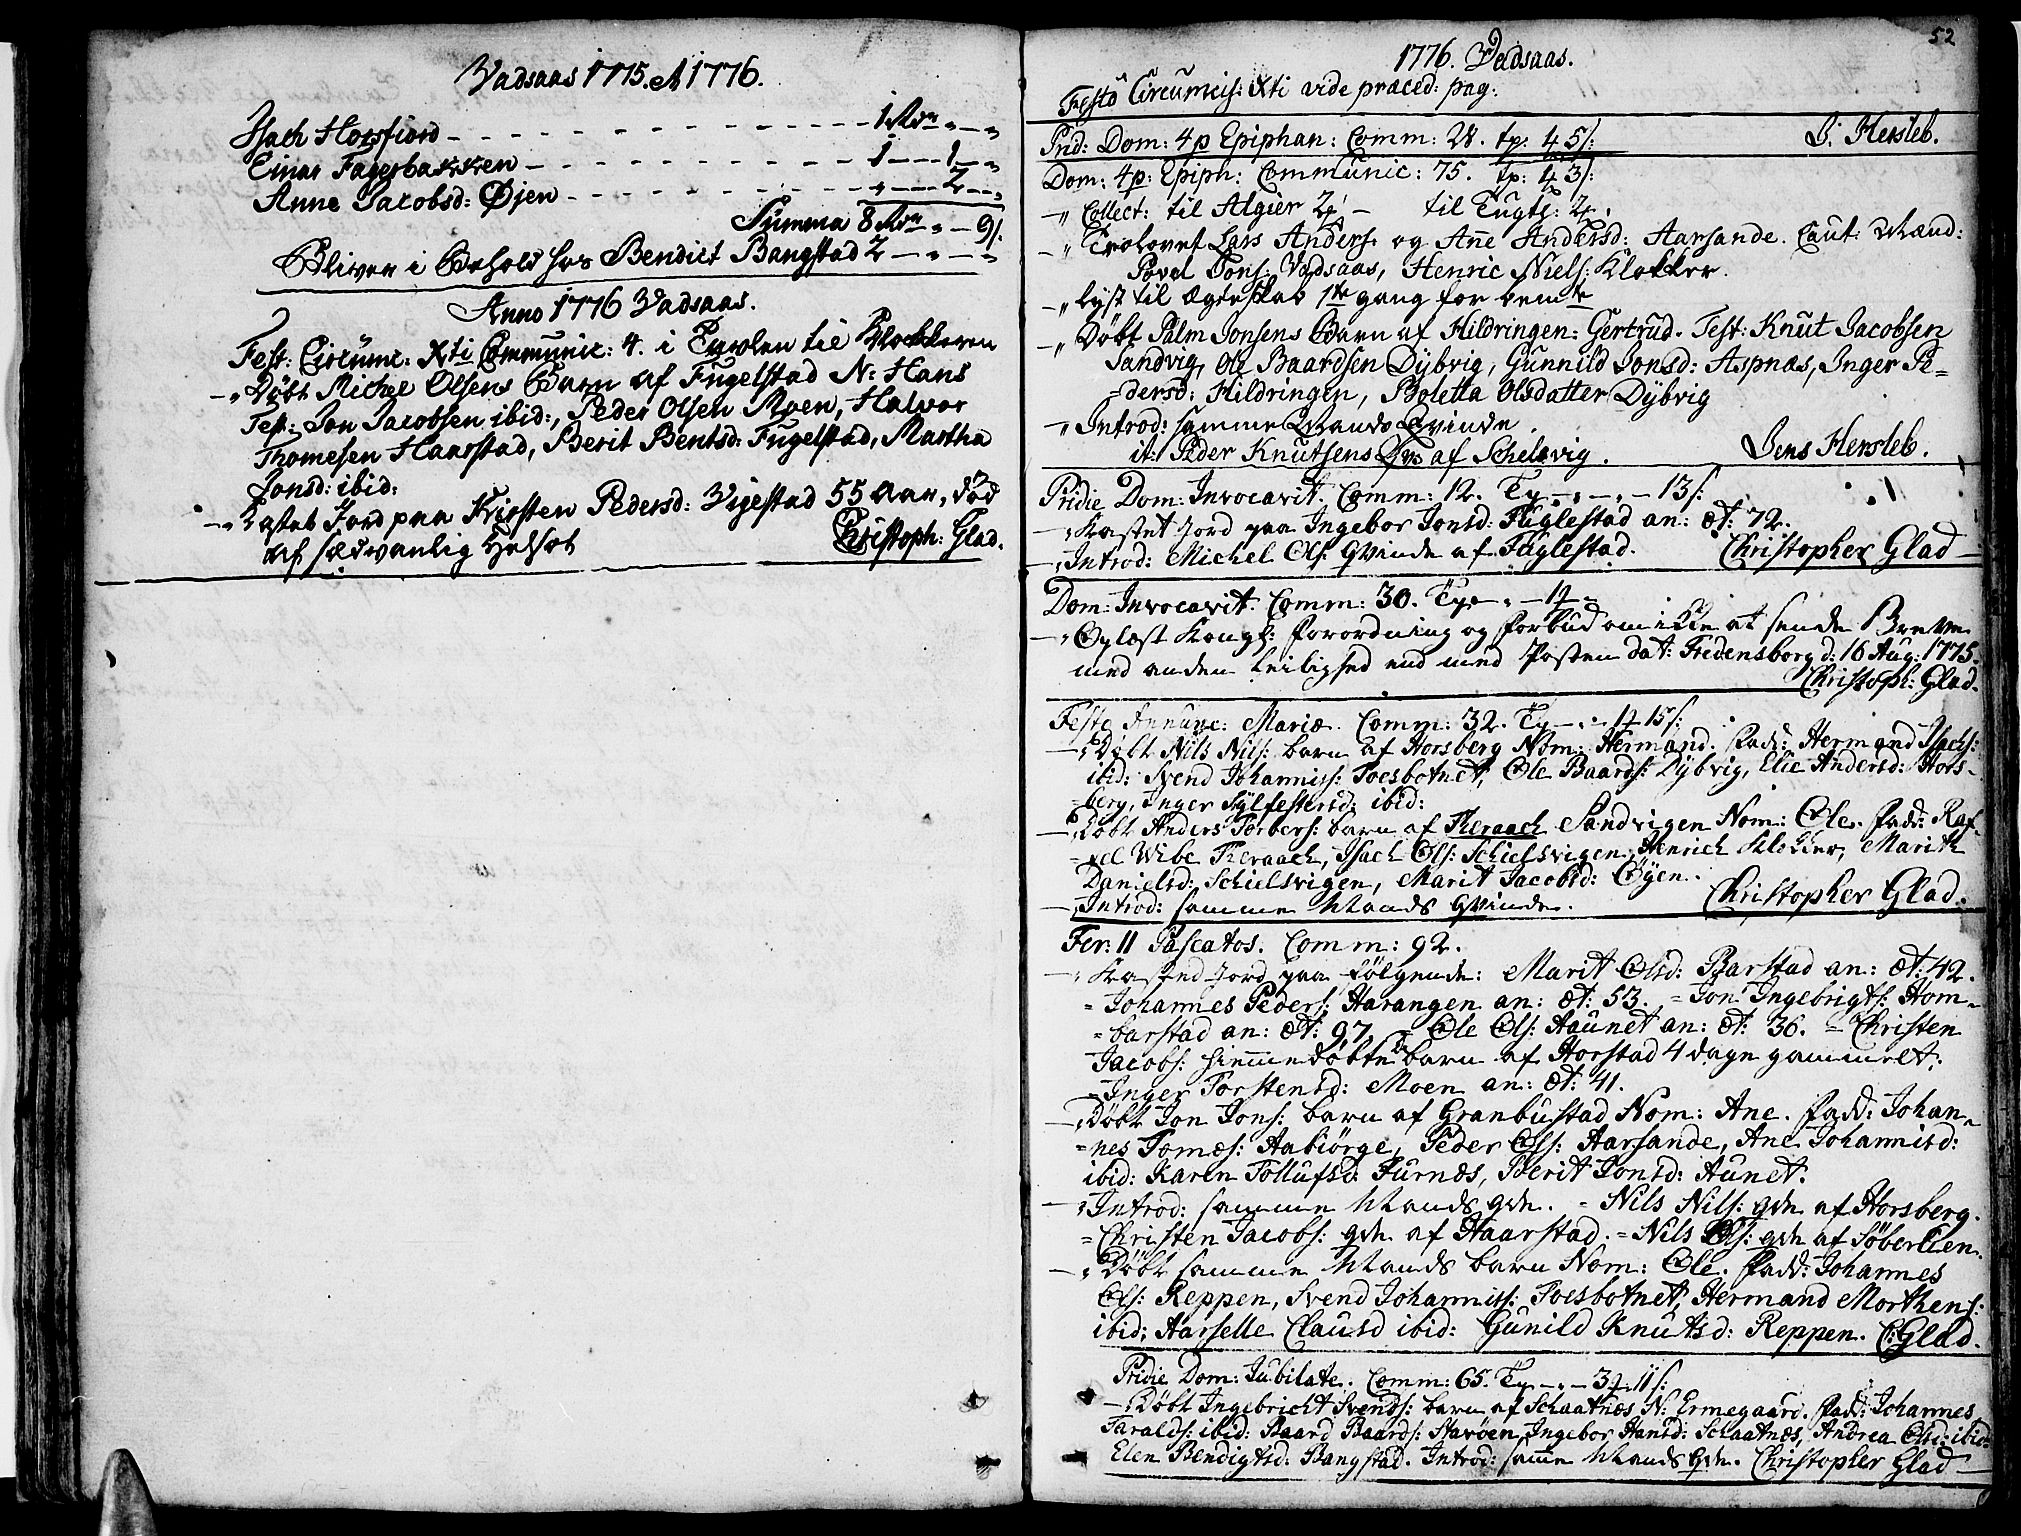 Vadsaas 1775. et 1776.
Isach Horsfiord - - - 1 Rdr " - "
Einar Fagerbakken - - - 1 - - 1 - "
Anne Jacobsd: Øjen - - - " - - 2 - - "
Summa 8 Rdr " - 9/.
Bliver i Behold hos Bendict Bangstad 2 - " - "
Anno 1776 Vadsaas.
Fest: Circumc: Xti Communic: 4. i Tavlen til Klokkeren
-" Døbt Michel Olsens Barn af Fugelstad N: Hans
Test: Jon Jacobsen ibid:, Peder Olsen Moen, Halvor
Thomesen Haarstad, Berit Bentsd: Fugelstad, Martha
Jonsd: ibid:
-" Kastet Jord paa Kirsten Pedersd: Vigestad 55 Aar, død
af sædvanlig Helsot Christoph: Glad.
52
1776. Vadsaas.
Festo Circumcis: Xti vide præced: pag:
Prid: Dom: 4 p Epiphan: Comm: 28. tp: 4 5/:
J. Hersleb.
Dom: 4 p: Epiph: Communic: 75. tp: 4 3/:
-" Collect: til Algier 24 - til Tugth: 24.
-" Trolovet Lars Anders: og Añe Andersd: Aarsande. Caut: Mænd:
Povel Jons: Vadsaas, Henric Niels: Klokker.
-" Lyst til Ægteskab 1te gang for bemte
-" Døbt Palm Jonsens Barn af Hildringen: Gertrud. Test: Knut Jacobsen
Sandvig, Ole Baardsen Dybvig, Gunnild Jonsd: Aspnæs, Inger Pe=
=dersd: Hildringen, Boletta Olsdatter Dybvig
-" Introd: samme Mands Qvinde.
it: Peder Knutsens Qv: af Schelsvig. Jens Hersleb.
Pridie Dom: Invocavit. Comm: 12. Ty - " - " - 13/:
-" Kastet Jord paa Ingebor Jonsd: Fuglestad an: æt: 72.
-" Introd: Michel Ols: Qvinde af Fuglestad. Christopher Glad
Dom: Invocavit. Comm: 30. Ty - " - 14 "
-" Oplæst Kongl: Forordning og Forbud om ikke at sende Breve
med anden Leilighed end med Posten dat: Fredensborg d: 16 Aug: 1775.
Christoph: Glad.
Festo Annunc: Mariæ. Comm: 32. Ty - " - 14 15/:
-" Døbt Nils Nils: barn af Horsberg Nom: Hermand. Fadd: Hermand Isachs:
ibid: Svend Johannis: Toesbotnet, Ole Baards: Dybvig, Elie Andersd: Hors-
=berg, Inger Sylfestersd: ibid:
-" Døbt Anders Torbers: barn af Theraach Sandvigen Nom: Ole. Fadd: Raf-
=el Wibe Theraach, Isach Ols: Schielsvigen, Henrich Klokker, Marith
Danielsd: Schielsvigen, Marit Jacobsd: Øyen.
-" Introd: samme Mands Qvinde. Christopher Glad.
Fer: II Pascatos. Comm: 92.
-" Kasted Jord paa følgende: Marit Olsd: Barstad an: æt: 42.
= Johannes Peders: Harangen an: æt: 53. = Jon Ingebrigts: Hom=
=barstad an: æt: 97. = Ole Ols: Haunet an: æt: 36. = Christen
Jacobs: hiemmedøbte barn af Horstad 4 dage gammelt.
= Inger Torstensd: Moen an: æt: 41.
-" Døbt Jon Jons: barn af Granbustad Nom: Ane. Fadd: Johan=
=nes Tomæs: Aabiørge, Peder Ols: Aarsande, Ane Johannisd:
ibid: Karen Tollufsd: Furnæs, Berit Jonsd: Aunet.
-" Introd: samme Mands qde. = Nils Nils: qde af Horsberg.
= Christen Jacobs: qde af Haarstad. = Nils Ols: qde af Søberlien.
-" Døbt samme Mands barn Nom: Ole. Fadd: Johannes
Ols: Reppen, Svend Johannis: Toesbotnet, Hermand Morthens:
ibid; Aarselle Clausd ibid: Gunild Knutsd: Reppen. C: Glad.
Pridie Dom: Jubilate. Comm: 65. Ty - " - 34 11/:
-" Døbt Ingebricht Svends: barn af Schaatnæs N: Ermegaard. Fadd: Johannes
Taralds: ibid: Baard Baards: Havøen, Ingebor Hansd: Schaatnæs, Andrea Olsd: ibid:
Elen Bendigtsd: Bangstad. Introd: samme Mands Qde. Christopher Glad